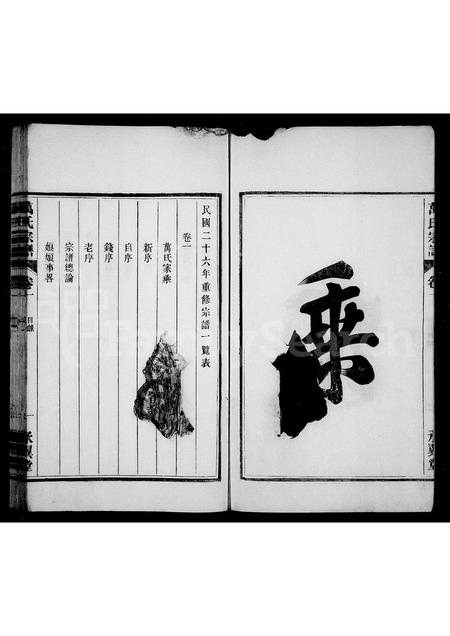 乘
萬氏宗譜
卷一
承巽堂
民國二十六年重修宗譜一覧表
卷一
萬氏家乘
新序
自序
錢序
老序
宗譜總論
娘娘事畧
萬氏宗譜
卷一
目錄
一
承巽堂
FamilySearch